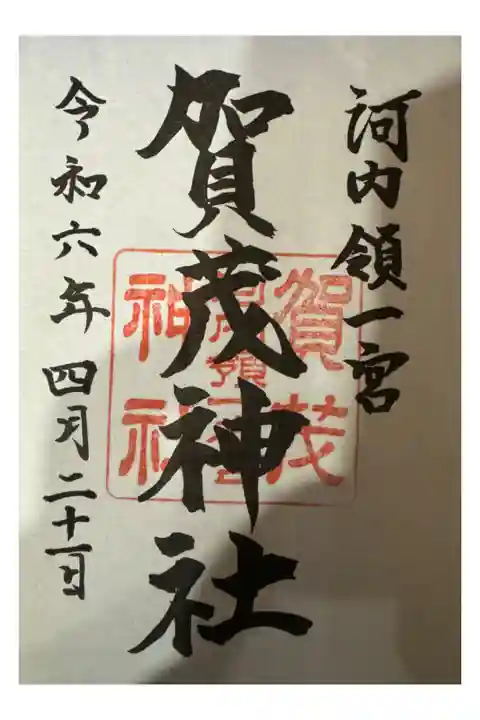 河内領一宮
賀茂神社
令和六年四月二十一日
賀茂
神社